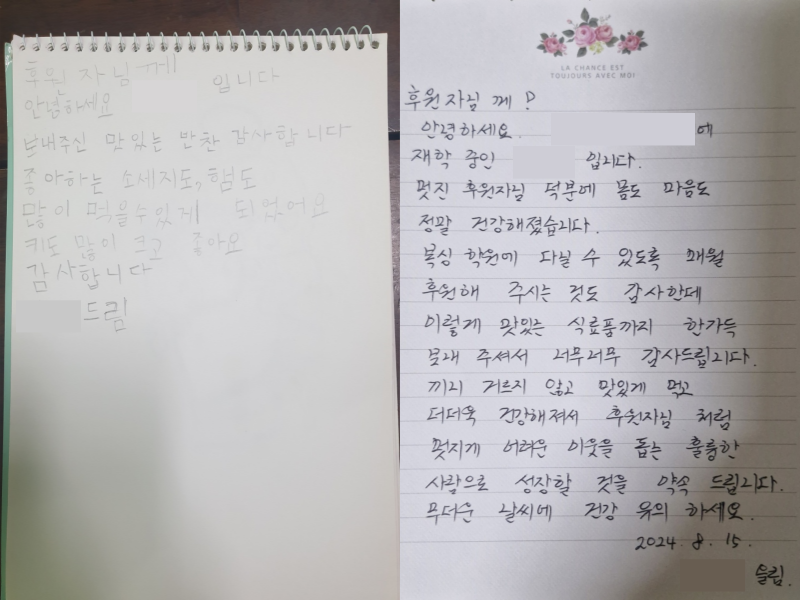 후원자님께
입니다
안녕하세요
보내주신 맛있는 반찬 감사합니다
좋아하는 소세지도, 햄도
많이 먹을수있게 되었어요
키도 많이 크고 좋아요
감사합니다
드림
LA CHANCE EST
TOUJOURS AVEC MOI
후원자님 께 !
안녕하세요. 에
재학 중인 입니다.
멋진 후원자님 덕분에 몸도 마음도
정말 건강해졌습니다.
복싱 학원에 다닐 수 있도록 매월
후원해 주시는 것도 감사한데
이렇게 맛있는 식료품까지 한가득
보내 주셔서 너무너무 감사드립니다.
끼니 거르지 않고 맛있게 먹고
더더욱 건강해져서 후원자님 처럼
멋지게 어려운 이웃을 돕는 훌륭한
사람으로 성장할 것을 약속 드립니다.
무더운 날씨에 건강 유의 하세요.
2024. 8. 15.
올림.